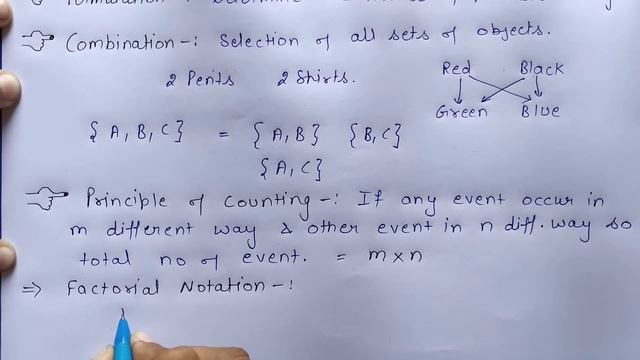 Combination -: Selection of all sets of objects.
2 Pents 2 Shirts.
Red Black
Green Blue
{A, B, C} = {A, B} {B, C}
{A, C}
Principle of Counting -: If any event occur in
m different way & other event in n diff. way so
total no of event. = m × n
⇒ Factorial Notation -: